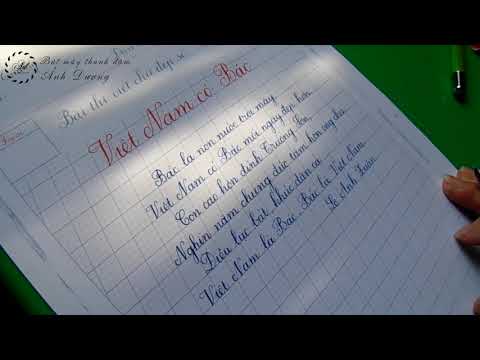 Bút máy thanh đậm
Ánh Dương
Bài thi viết chữ đẹp số
Việt Nam có Bác
Bác là non nước trời mây,
Việt Nam có Bác mỗi ngày đẹp hơn
Còn cao hơn đỉnh Trường Sơn,
Nghìn năm chung đúc tâm hồn ông cha
Điệu lục bát, khúc dân ca
Việt Nam là Bác, Bác là Việt Nam
Lê Anh Xuân